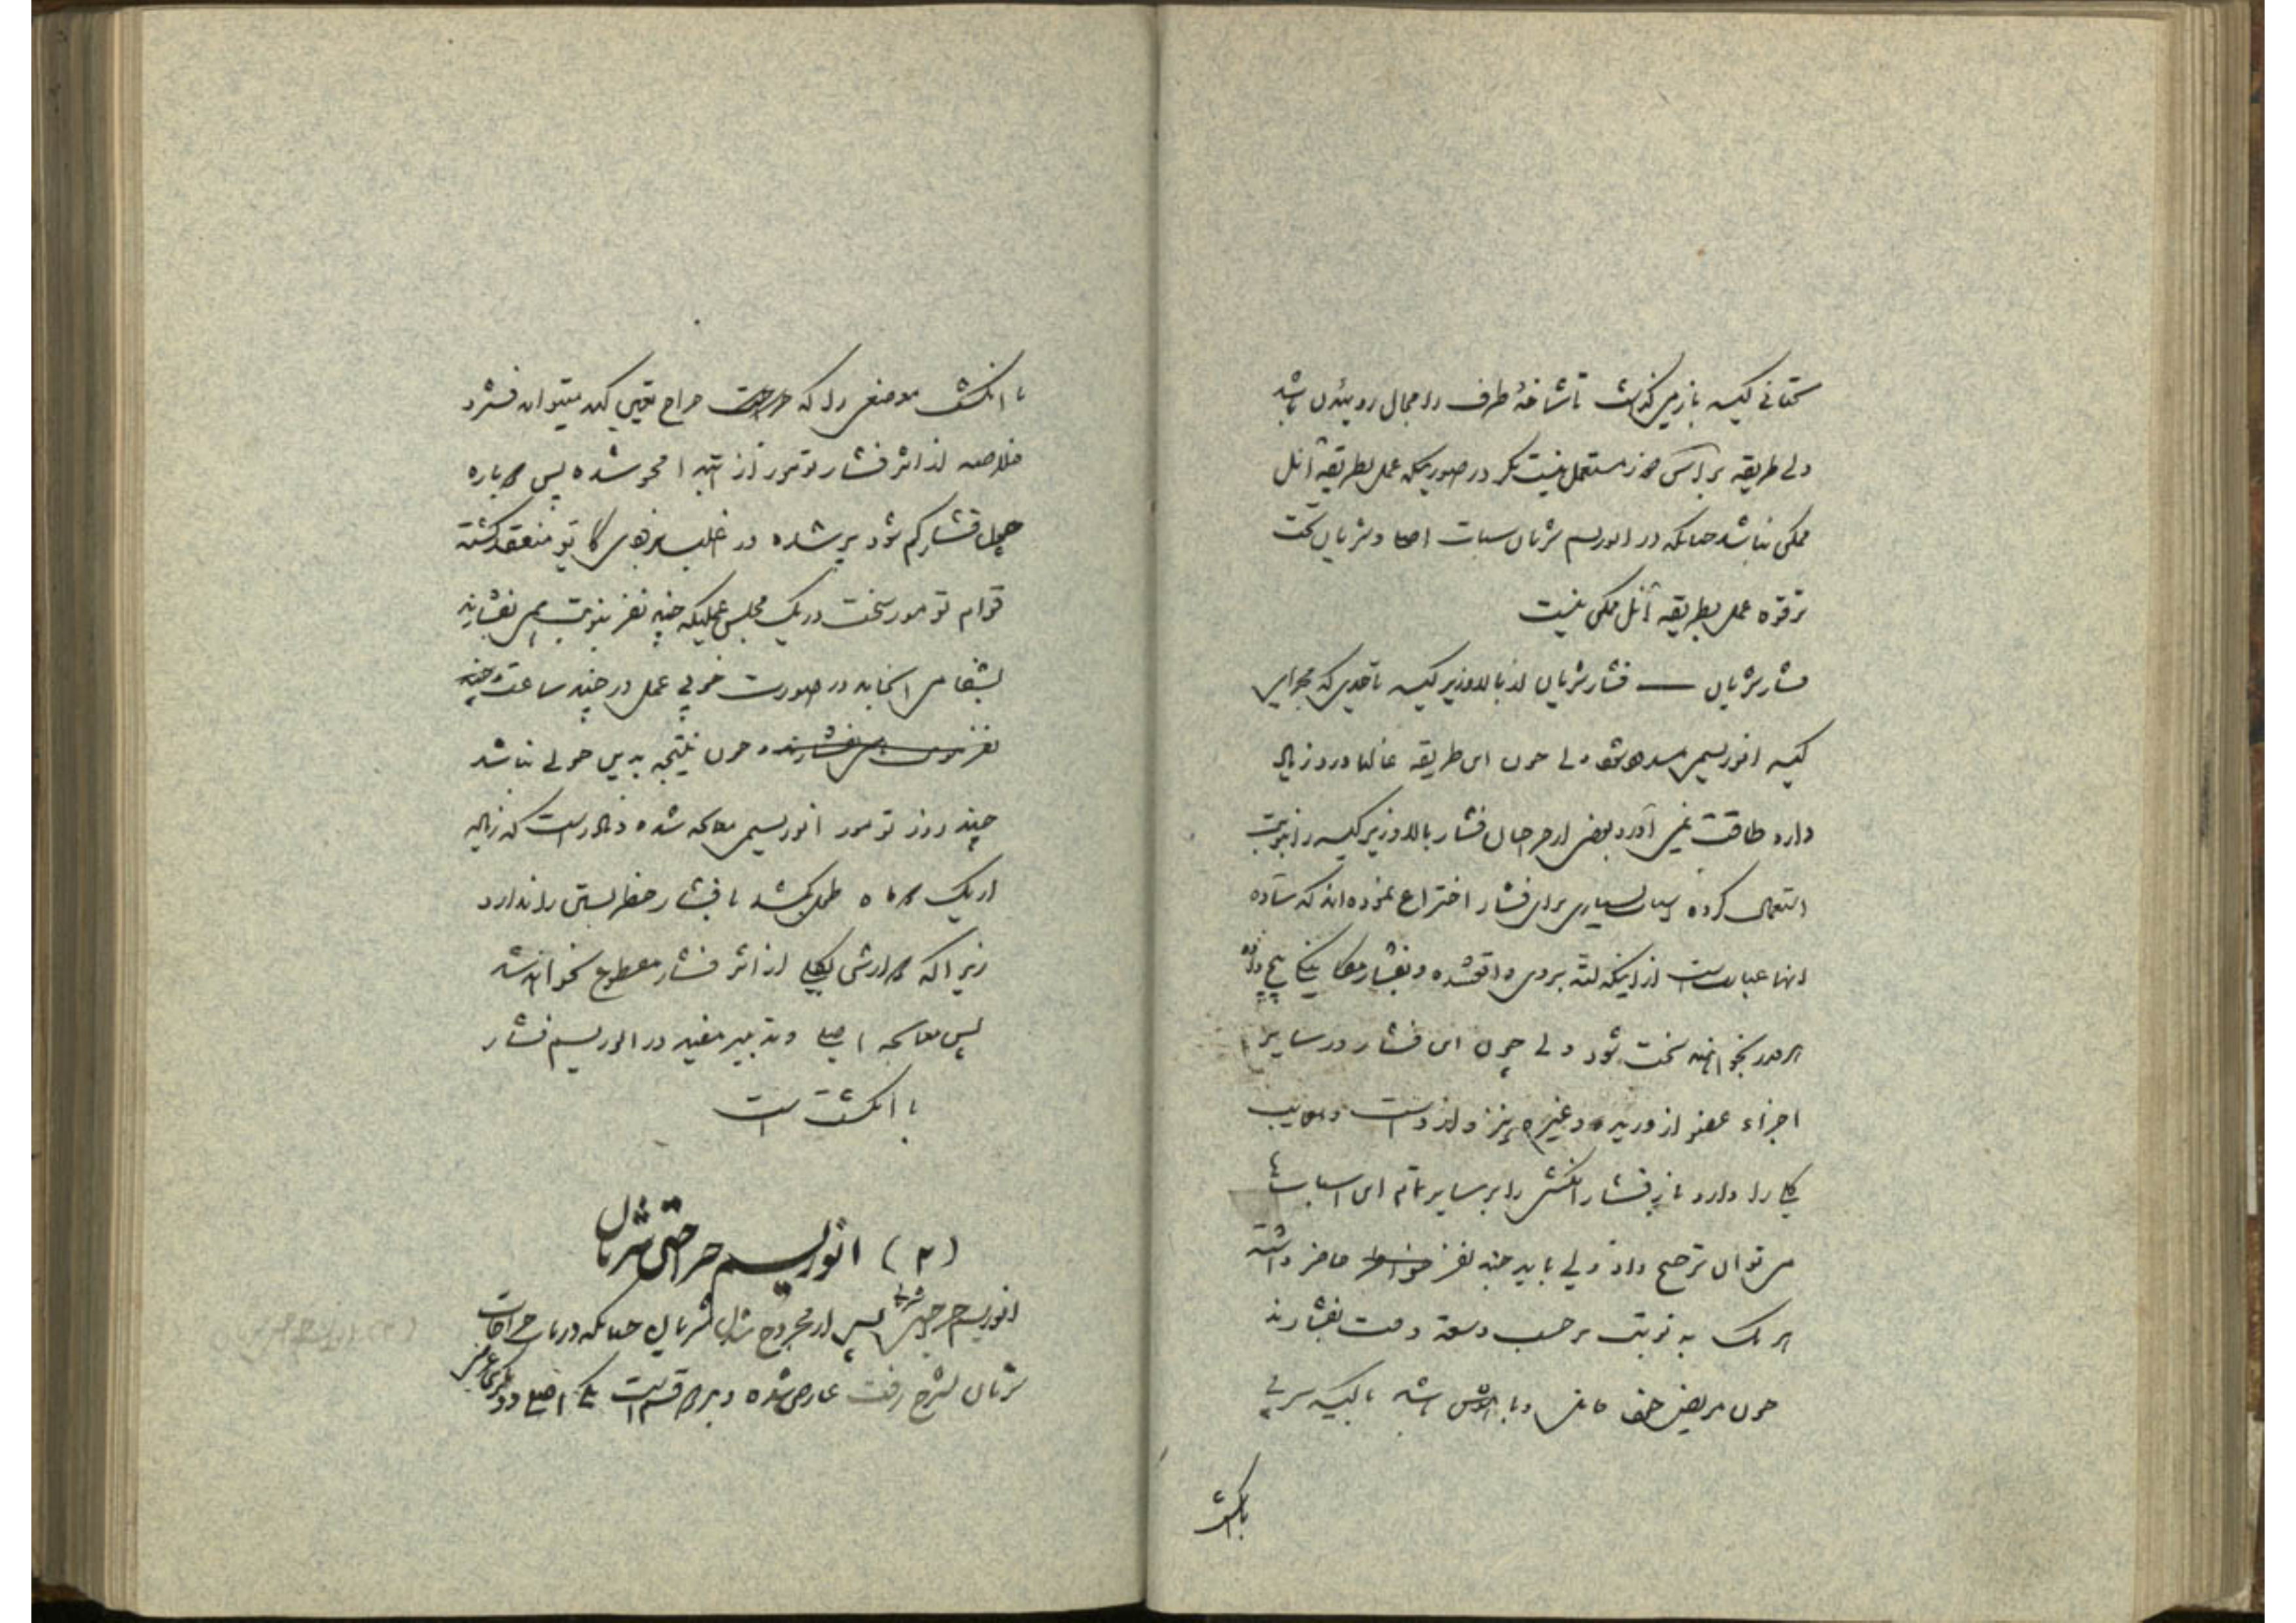 تحتانی کیسه باز میگذاشت تا شاخهٔ طرف را مجال روئیدن باشد
ولی طریقه براسکی هنوز مستعمل نیست مگر در صورتیکه عمل بطریقه آنل
ممکن نباشد چنانکه در انوریسم شریان سبات اصلی و شریان تحت
ترقوه عمل بطریقه آنل ممکن نیست
فشار شریان — فشار شریان از بالا و زیر کیسه تا قدری که مجرای
کیسه انوریسمی مسدود شود ولی چون این طریقه غالبا درد زیاد
دارد طاقت نمی آورد بعضی از جراحان فشار بالا و زیر کیسه را بنوبت
استعمال کرده اسباب بسیاری برای فشار اختراع نموده اند که ساده
انها عبارتست از اینکه لته بروی واقع شده و بفشار پیچ
هر قدر بخواهند سخت شود ولی چون این فشار در سایر
اجزاء عضو از ورید و غیره نیز وارد است و معایب
را دارد باز فشار انگشت را بر سایر تمام این اسبابها
می توان ترجیح داد ولی باید چند نفر حاضر داشته
هر یک به نوبت بر حسب وسعت وقت بفشارند
چون مریض خود عاقل و باهوش باشد با کیسه سربی
با انگشت
با انگشت موضعی را که جراح تعیین کند میتواند فشرد
خلاصه از اثر فشار تومور از ابتدا محو شده پس دوباره
چون فشار کم شود پر شده در اغلب منعقد گشته
قوام تومور سخت در یک مجلس عملیکه چند نفر بنوبت می بفشارند
بشفا می انجامد در صورت خوبی عمل در چند ساعت و چند
نفر و چون نتیجه بدین خوبی نباشد
چند روز تومور انوریسمی معالجه شده و نادر است که زیاد
از یک دو ماه طول بکشد با فشار خطر بستن را ندارد
زیرا که دورانش بکلی از اثر فشار مقطوع نخواهد شد
پس معالجه اصلی و تدبیر مفید در انوریسم فشار
با انگشت است
(۲) انوریسم جراحتی شریان
انوریسم جراحتی شریان پس از مجروح شدن شریان چنانکه در باب جراحات
شریان بشرح رفت عارض شده و بر دو قسم است یکی اصلی و دیگری عارضی